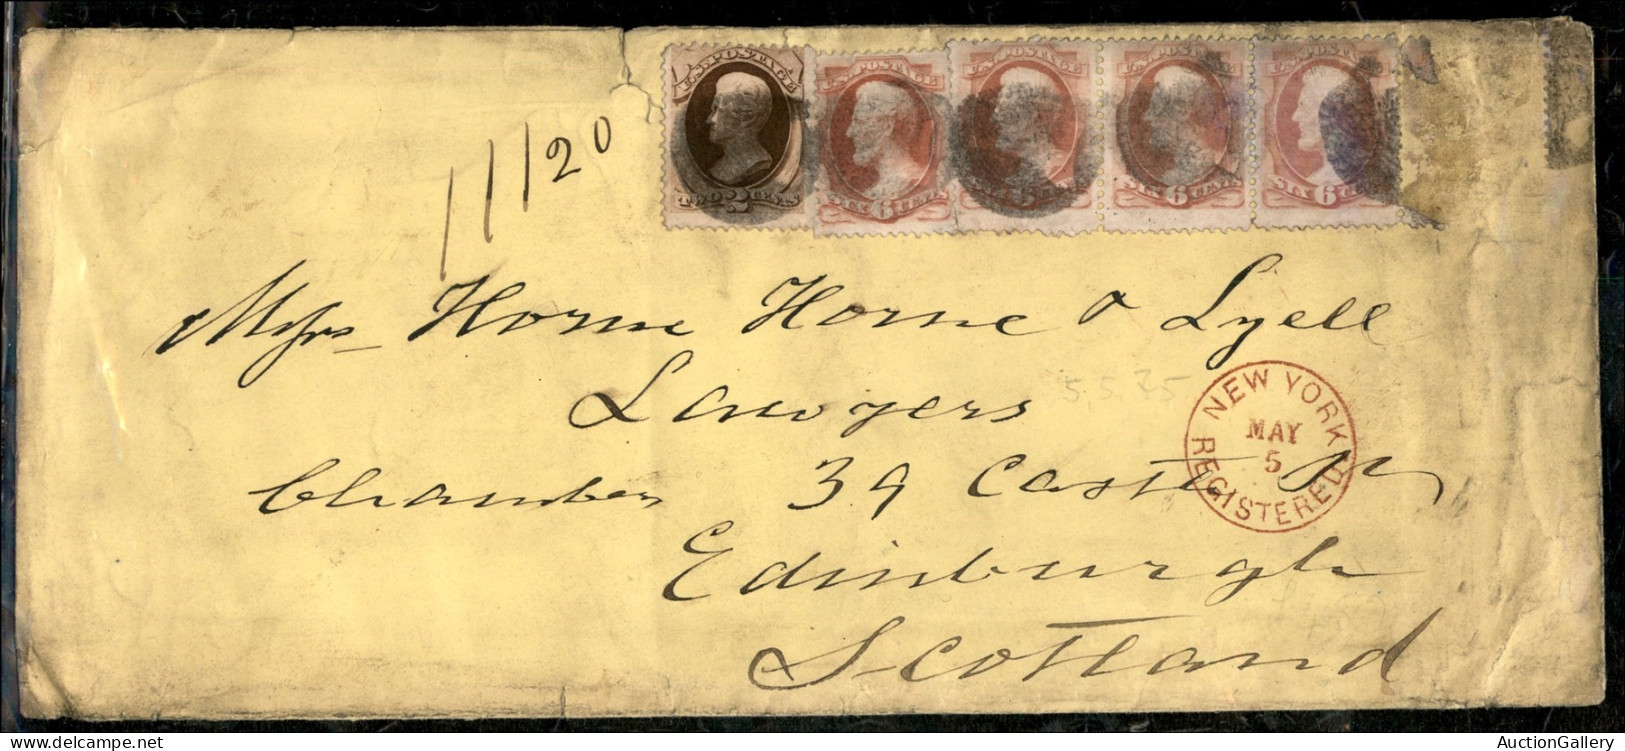 U.S. POSTAGE U.S. POSTAGE U.S. POSTAGE U.S. POSTAGE U.S. POSTAGE
TWO 2 CENTS SIX 6 CENTS 6 SIX 6 CENTS SIX 6 CENTS
11120
Messrs Horne Horne & Lyell
Lawyers
5.5.75
NEW YORK
MAY
5
REGISTERED
Chambers 39 Castle
Edinburgh
Scotland
AuctionGallery